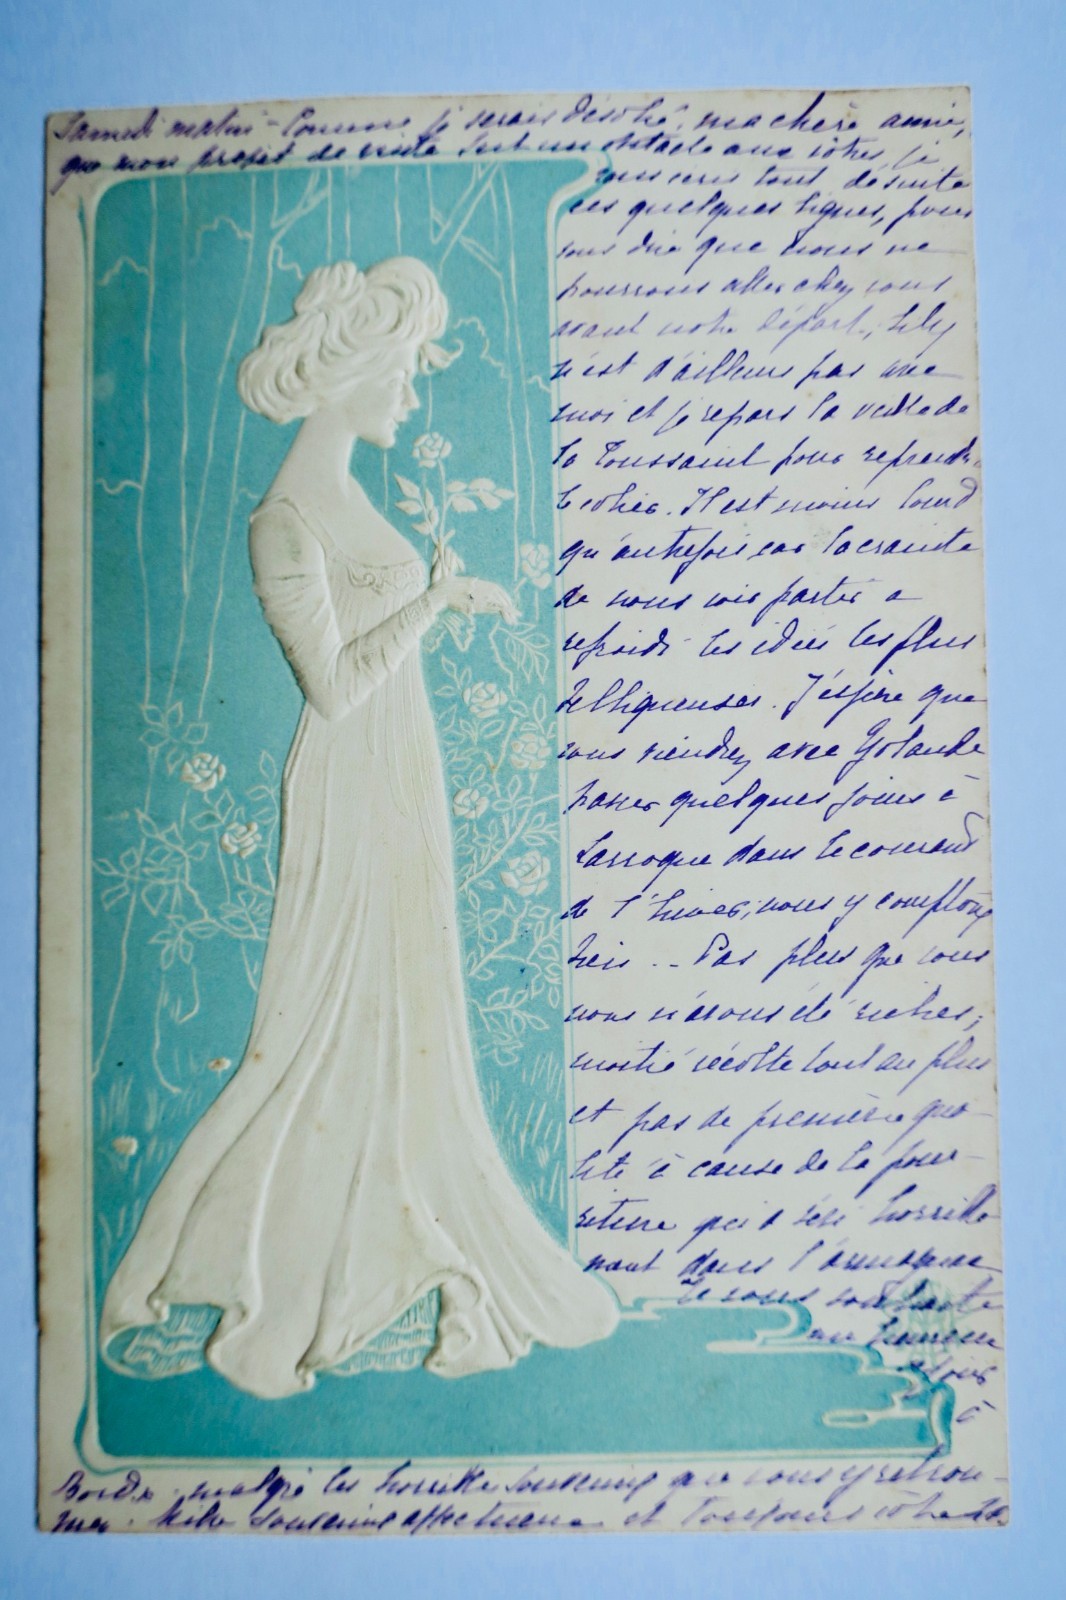 Samedi matin - Comme je serais désolé, ma chère amie,
que mon projet de visite soit un obstacle aux vôtres, je
vous écris tout de suite
ces quelques lignes, pour
vous dire que nous ne
pourrons aller chez vous
avant notre départ,
n'est d'ailleurs pas avec
moi et je repars la veille de
la Toussaint pour reprendre
le collier. Il est moins lourd
qu'autrefois car la crainte
de nous voir partir a
refroidi les idées les plus
belliqueuses. J'espère que
vous viendrez avec Yolande
passer quelques jours à
Larroque dans le courant
de l'hiver; nous y comptons
bien .. Pas plus que vous
nous n'avons été riches;
moitié récolte tout au plus
et pas de première qua-
lité à cause de la pour-
riture qui a sévi horrible-
ment dans l'armagnac
Je vous souhaite
un heureux
séjour
à
Bordx. malgré les horribles souvenirs que vous y retrou-
vez. Mille souvenirs affectueux et toujours vôtre